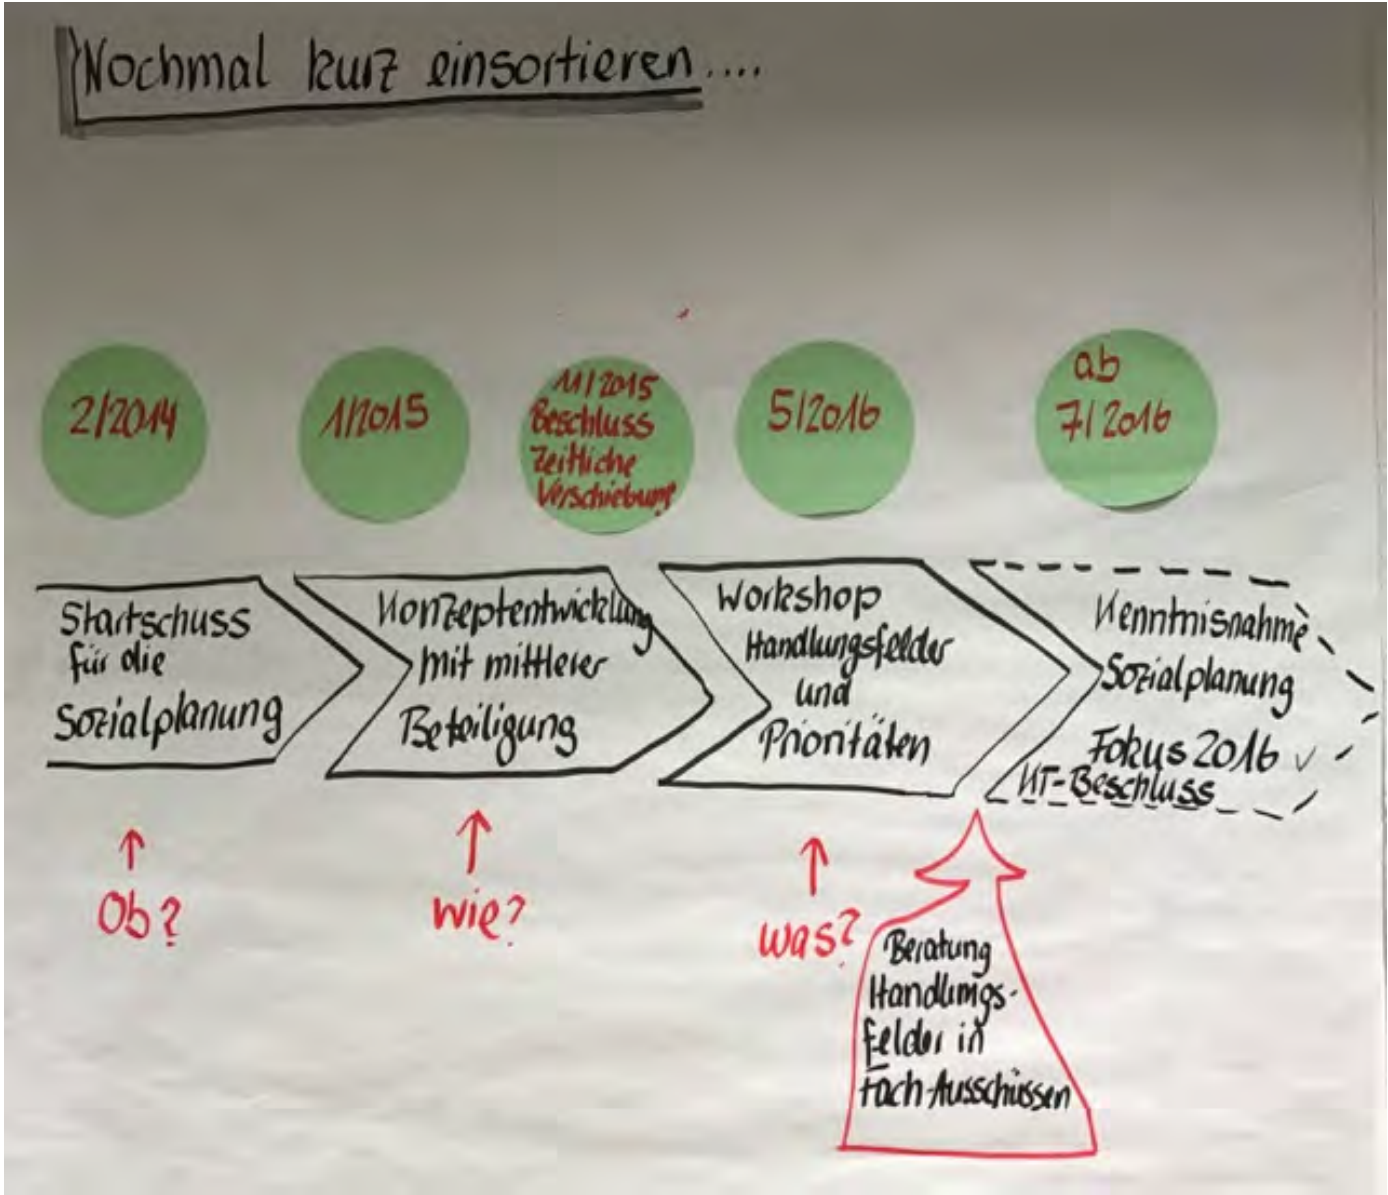 Nochmal kurz einsortieren....
2/2014
1/2015
11/2015
Beschluss
Zeitliche
Verschiebung
5/2016
ab
7/2016
Startschuss
für die
Sozialplanung
Konzeptentwicklung
mit mittlerer
Beteiligung
Workshop
Handlungsfelder
und
Prioritäten
Kenntnisnahme
Sozialplanung
Fokus 2016
KT-Beschluss
Ob?
wie?
was?
Beratung
Handlungs-
felder in
Fach-Ausschüssen